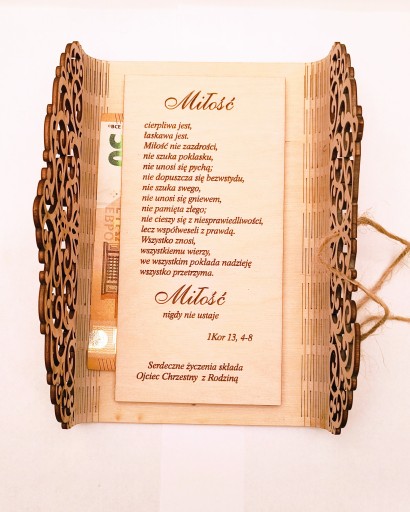 Miłość
cierpliwa jest,
łaskawa jest.
Miłość nie zazdrości,
nie szuka poklasku,
nie unosi się pychą;
nie dopuszcza się bezwstydu,
nie szuka swego,
nie unosi się gniewem,
nie pamięta złego;
nie cieszy się z niesprawiedliwości,
lecz współweseli z prawdą.
Wszystko znosi,
wszystkiemu wierzy,
we wszystkim pokłada nadzieję
wszystko przetrzyma.
Miłość
nigdy nie ustaje
1Kor 13, 4-8
Serdeczne życzenia składa
Ojciec Chrzestny z Rodziną